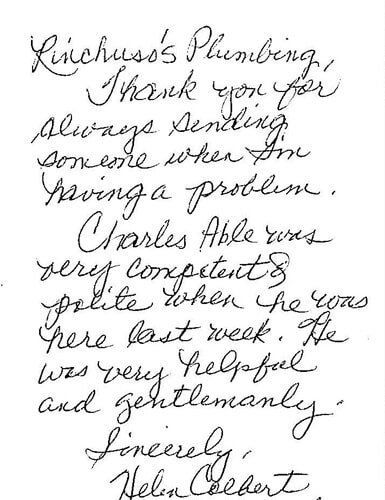 Rinchuso's Plumbing,
Thank you for
always sending
someone when I'm
having a problem.
Charles Able was
very competent &
polite when he was
here last week. He
was very helpful
and gentlemanly.
Sincerely,
Helen Colbert